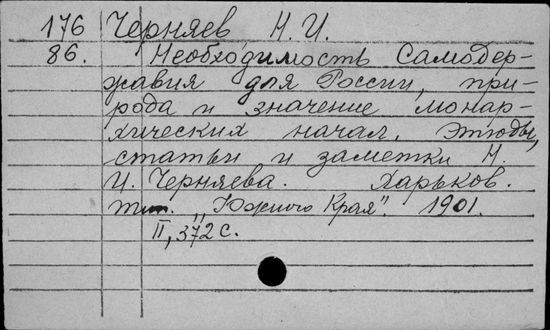 176 Черняев Н. И.
86. Необходимость Самодер-
жавия для России, при-
рода и значение монар-
хических начал. Этюды,
статьи и заметки Н.
И. Черняева. Харьков.
тип. „Южного Края". 1901.
II, 372 с.